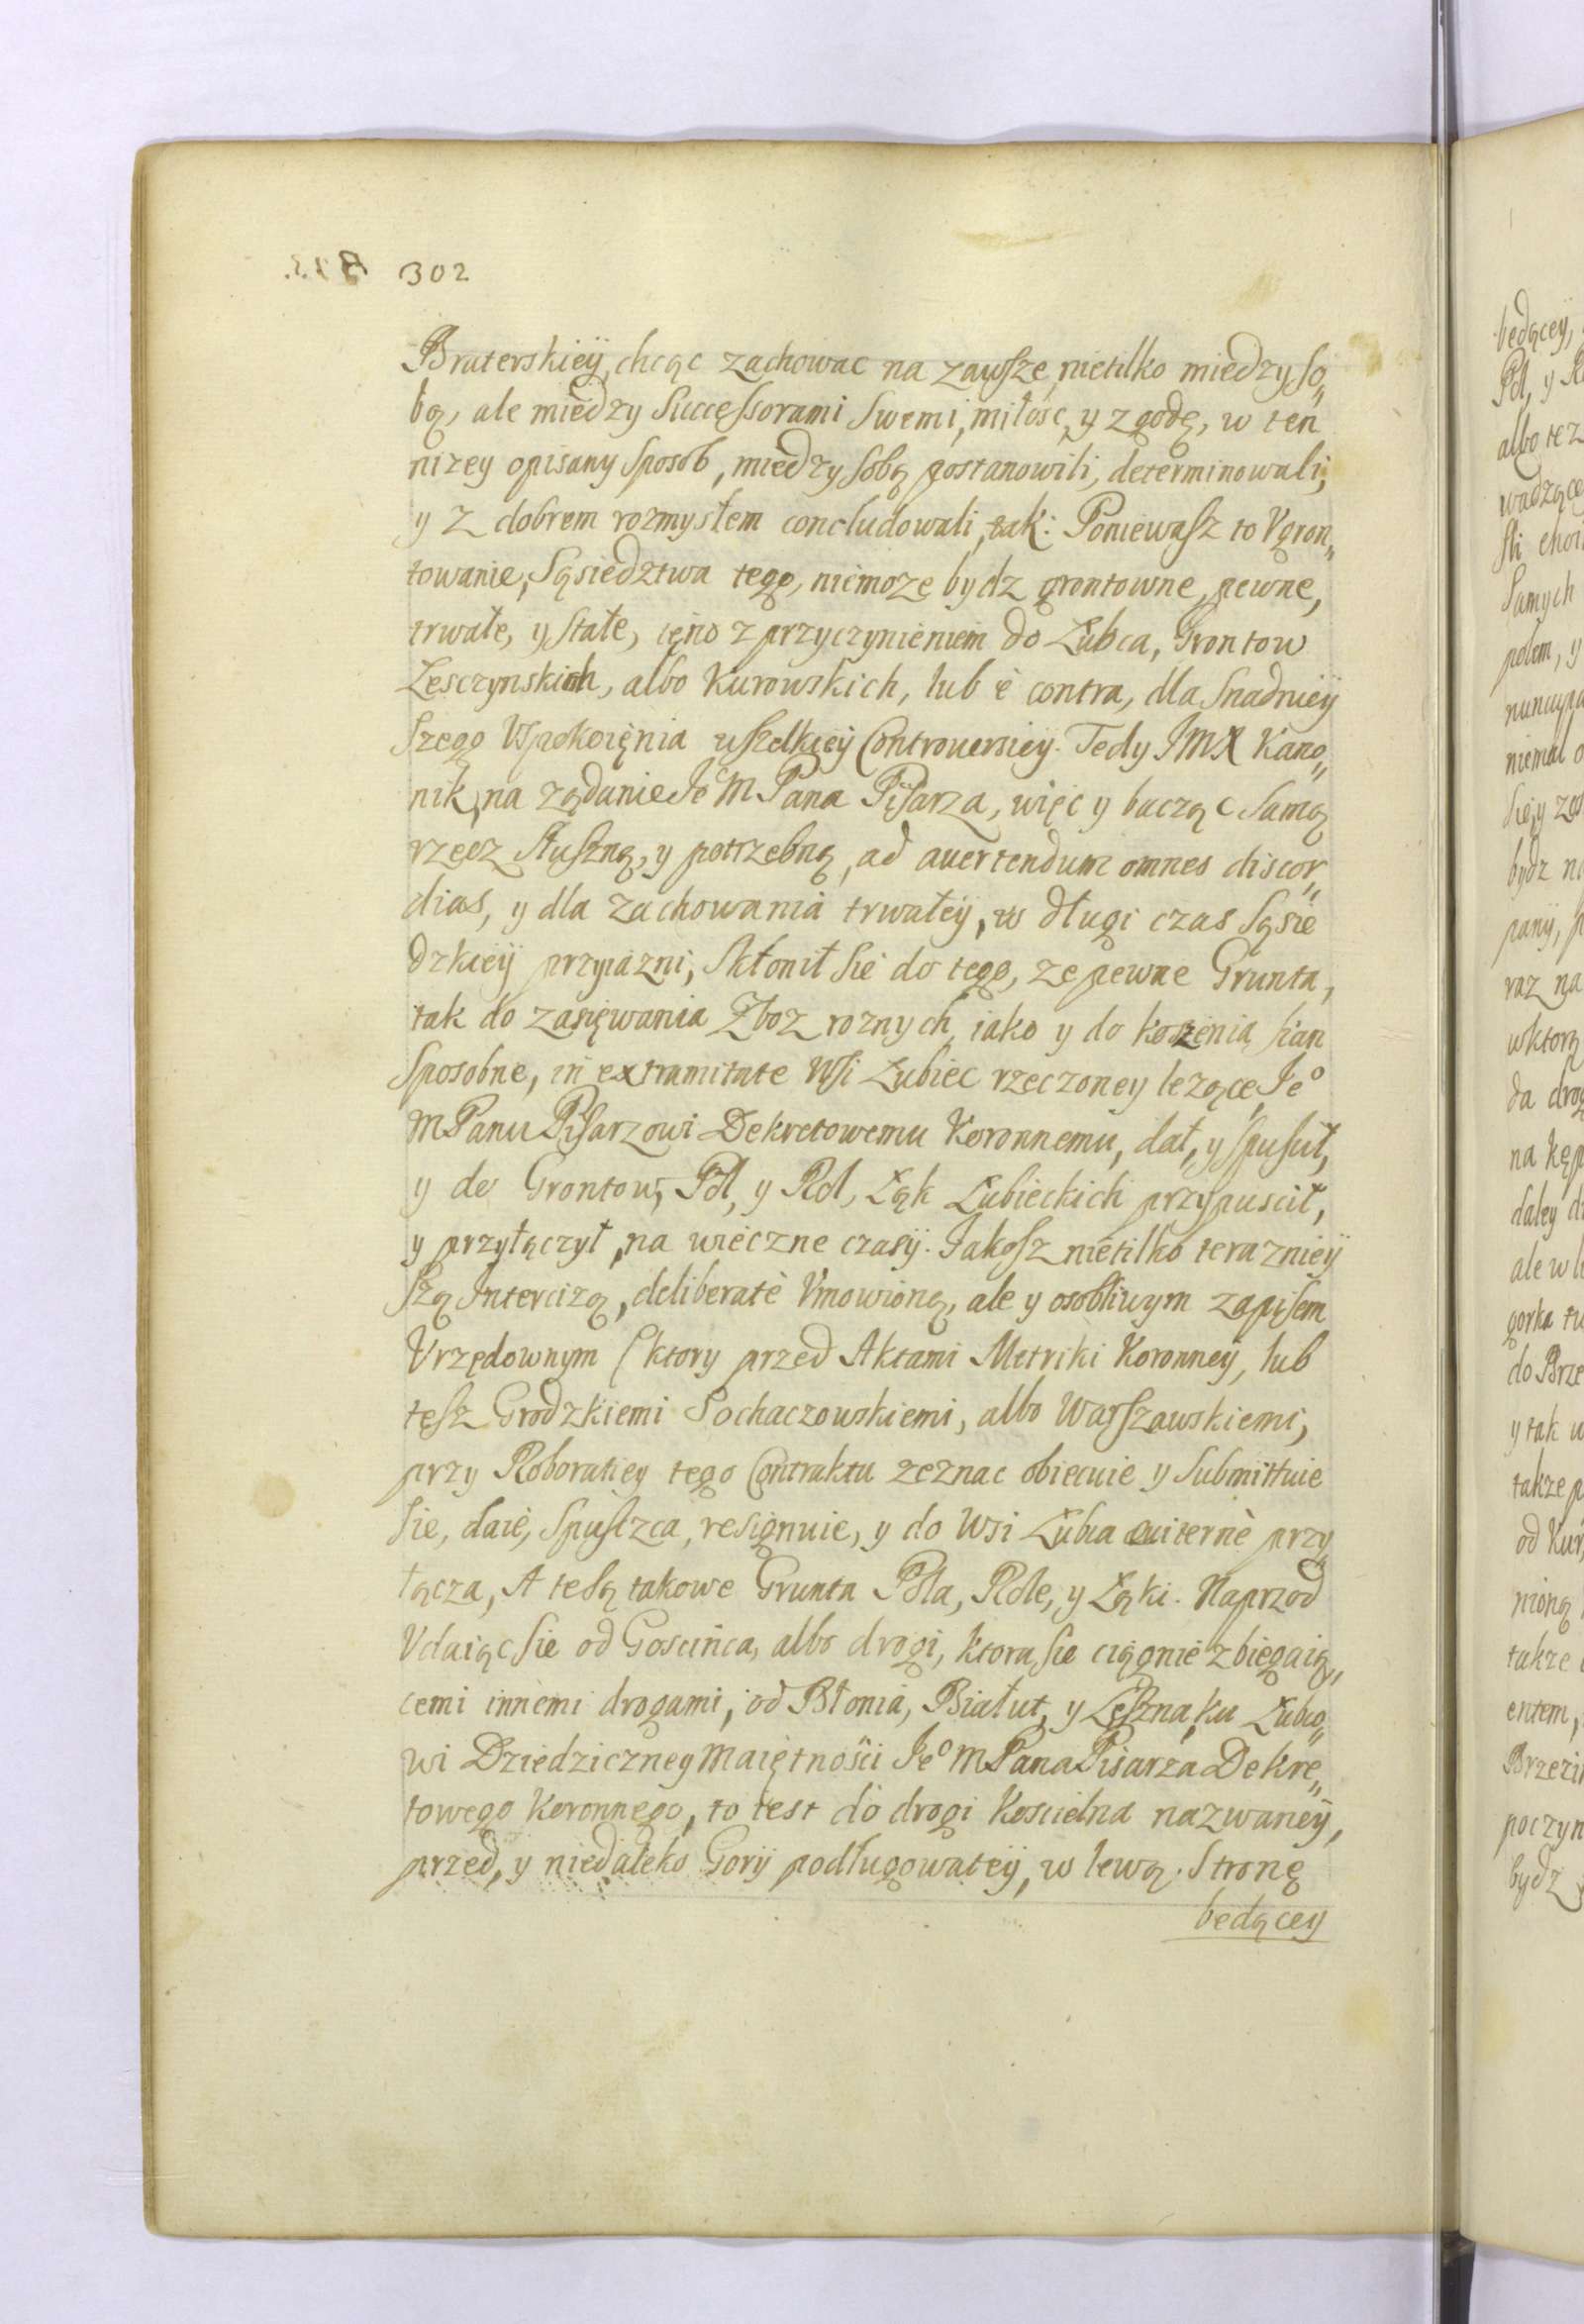 302
Braterskieÿ, chcąc zachowac na zawsze, nietilko miedzy so„
bą, ale miedzy Successorami Swemi, miłosc, y zgodę, w ten
nizey opisany sposob, miedzy sobą postanowili, determinowali,
y z dobrem rozmysłem concludowali, tak: Poniewasz to Vgron„
towanie, Sąsiedztwa tego, niemoze bydz grontowne, pewne,
trwałe, y stałe, ieno z przyczynieniem do Łubca, Grontow
Lesczynskich, albo Kurowskich, lub è contra, dla snadnieÿ
szego Vspokoięnia wszelkieÿ Controuersiey. Tedy JMX Kano„
nik, na ządanie Jeº M Pana Pisarza, więc y bacząc samą
rzecz słuszną, y potrzebną, ad auertendum omnes discor„
dias, y dla zachowania trwałeÿ, w długi czas Sąsie
dzkieÿ przyiazni, skłonił sie do tego, ze pewne Grunta,
tak do zasięwania Zboz roznych, iako y do koszenia sian
sposobne, in extramitate Wsi Łubiec rzeczoney lezące, Jeº
MPanu Pisarzowi Dekretowemu Koronnemu, dał, y spuscił,
y do Grontow, Pol, y Rol, Łąk Łubieckich przypuscił,
y przyłączył, na wieczne czasÿ. Jakosz nietilko terazniey
szą Intercizą, deliberatè Vmowioną, ale y osobliwym zapisem
Vrzędownym (ktory przed Aktami Metriki Koronneÿ, lub
tesz Grodzkiemi Sochaczowskiemi, albo Warszawskiemi,
przy Roboratiey tego Contraktu zeznac obiecuie y submittuie
sie, daie, spuszcza, resignuie, y do Wsi Łubca æuiternè przy„
łącza, A te są takowe Grunta Pola, Role, y Łąki. Naprzod
Vdaiąc sie od Goscińca, albo drogi, ktora sie ciągnie zbiegaią„
cemi innemi drogami, od Błonia, Białut, y Leszna, ku Łubco„
wi Dziedziczney Maiętności Jeº MPana Pisarza Dekre„
towego Koronnego, to iest do drogi Koscielna nazwaneÿ,
przed, y niedaleko Gorÿ podługowateÿ, w lewą stronę
będącey
będąceÿ,
Pol, y
albo tez
wadzące
Samych
polem, y
niemal o
bydz
raz na
wktorą
da drog
na kęp
daley
gorka
do Brze
y tak
takze
od Kur
nioną
takze
entem,
Brzezi
poczyn
bydz